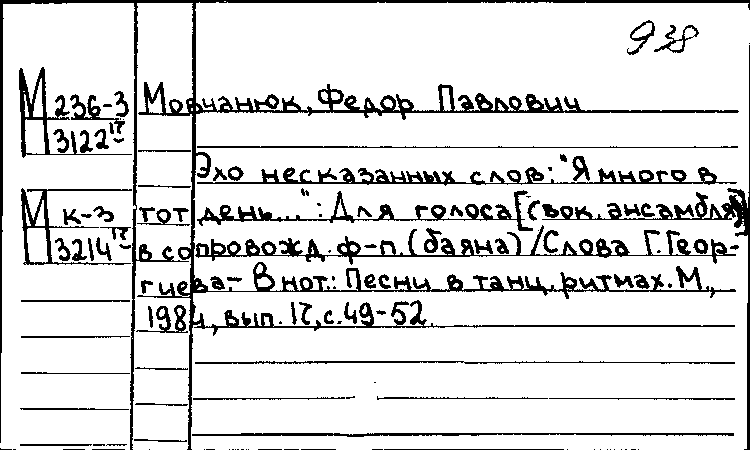 938
М 236-3 Мовчанюк, Федор Павлович
3122 17
Эхо несказанных слов: "Я много в
М К-3 тот день...": Для голоса [(вок. ансамбля)]
3214 17 в сопровожд. ф-п. (баяна) / Слова Г. Геор-
гиева.- В нот.: Песни в танц. ритмах. М.,
1984, вып. 17, с. 49-52.